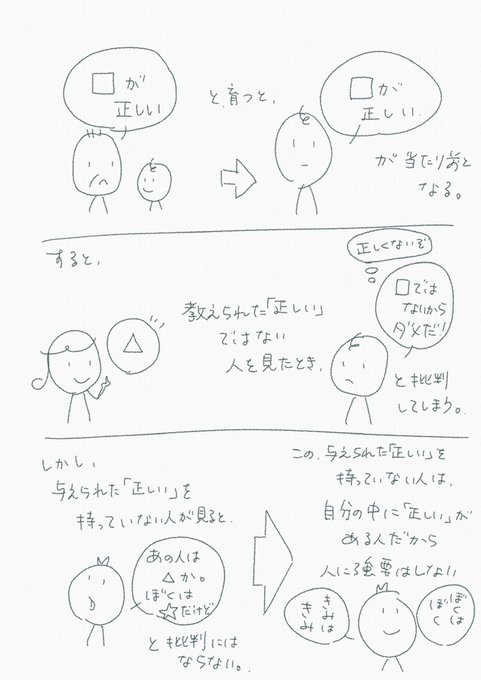 □が
正しい
と育つと、
□が
正しい
が当たり前と
なる。
すると、
△
教えられた「正しい」
ではない
人を見たとき、
正しくないぞ
□では
ないから
ダメだ!
と批判
してしまう。
しかし、
与えられた「正しい」を
持っていない人が見ると、
あの人は
△か。
ぼくは
☆だけど
と批判には
ならない。
この、与えられた「正しい」を
持っていない人は、
自分の中に「正しい」が
ある人だから
人に強要はしない
きみは
きみ
ぼくは
ぼく